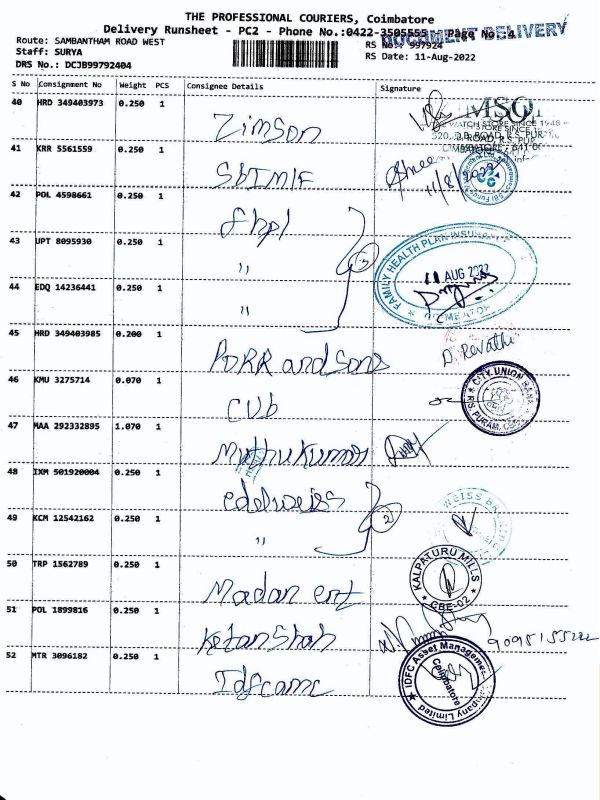 THE PROFESSIONAL COURIERS, Coimbatore
Delivery Runsheet - PC2 - Phone No.:0422-3505555 - Page No.:4
DOCUMENT DELIVERY
Route: SAMBANTHAM ROAD WEST
RS No.: 997924
Staff: SURYA
RS Date: 11-Aug-2022
DRS No.: DCJB99792404
S No Consignment No Weight PCS Consignee Details Signature
40 HRD 349403973 0.250 1 Zimson
WATCH STORE SINCE 1948
320, D.B. ROAD, R.S. PUR
41 KRR 5561559 0.250 1 SbIMIF
11/8/2022
42 POL 4598661 0.250 1 fhpl
43 UPT 8095930 0.250 1 "
FAMILY HEALTH PLAN INSURANCE
11 AUG 2022
44 EDQ 14236441 0.250 1 "
45 HRD 349403985 0.200 1 PORR and Sons D. Revathi
46 KMU 3275714 0.070 1 CUb
CITY UNION BANK
R.S. PURAM, CBE
47 MAA 292332895 1.070 1 Muthukumar
48 IXM 501920004 0.250 1 edelweiss 2
49 KCM 12542162 0.250 1 "
50 TRP 1562789 0.250 1 Madan ent
KALPATURU MILLS
CBE-02
51 POL 1899816 0.250 1 Ketan Shah
52 MTR 3096182 0.250 1 Idfcamc
IDFC Asset Management Company Limited
Coimbatore